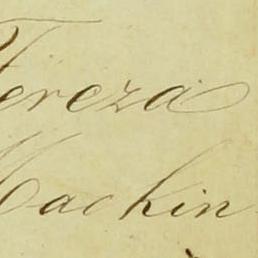 Tereza
Mackin